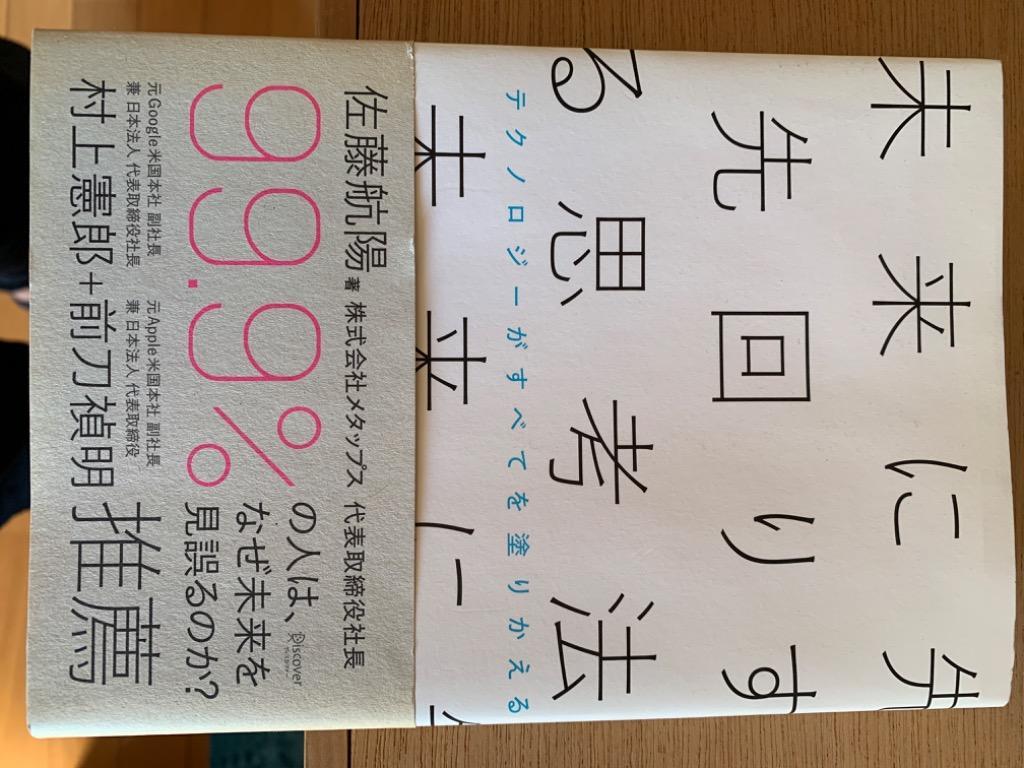 未来に先
先回りす
る思考法
テクノロジーがすべてを塗りかえる
未来に
佐藤航陽 著 株式会社メタップス 代表取締役社長
99.9%の人は、
なぜ未来を
見誤るのか?
Discover
元Google米国本社 副社長
兼 日本法人 代表取締役社長
元Apple米国本社 副社長
兼 日本法人 代表取締役
村上憲郎+前刀禎明 推薦